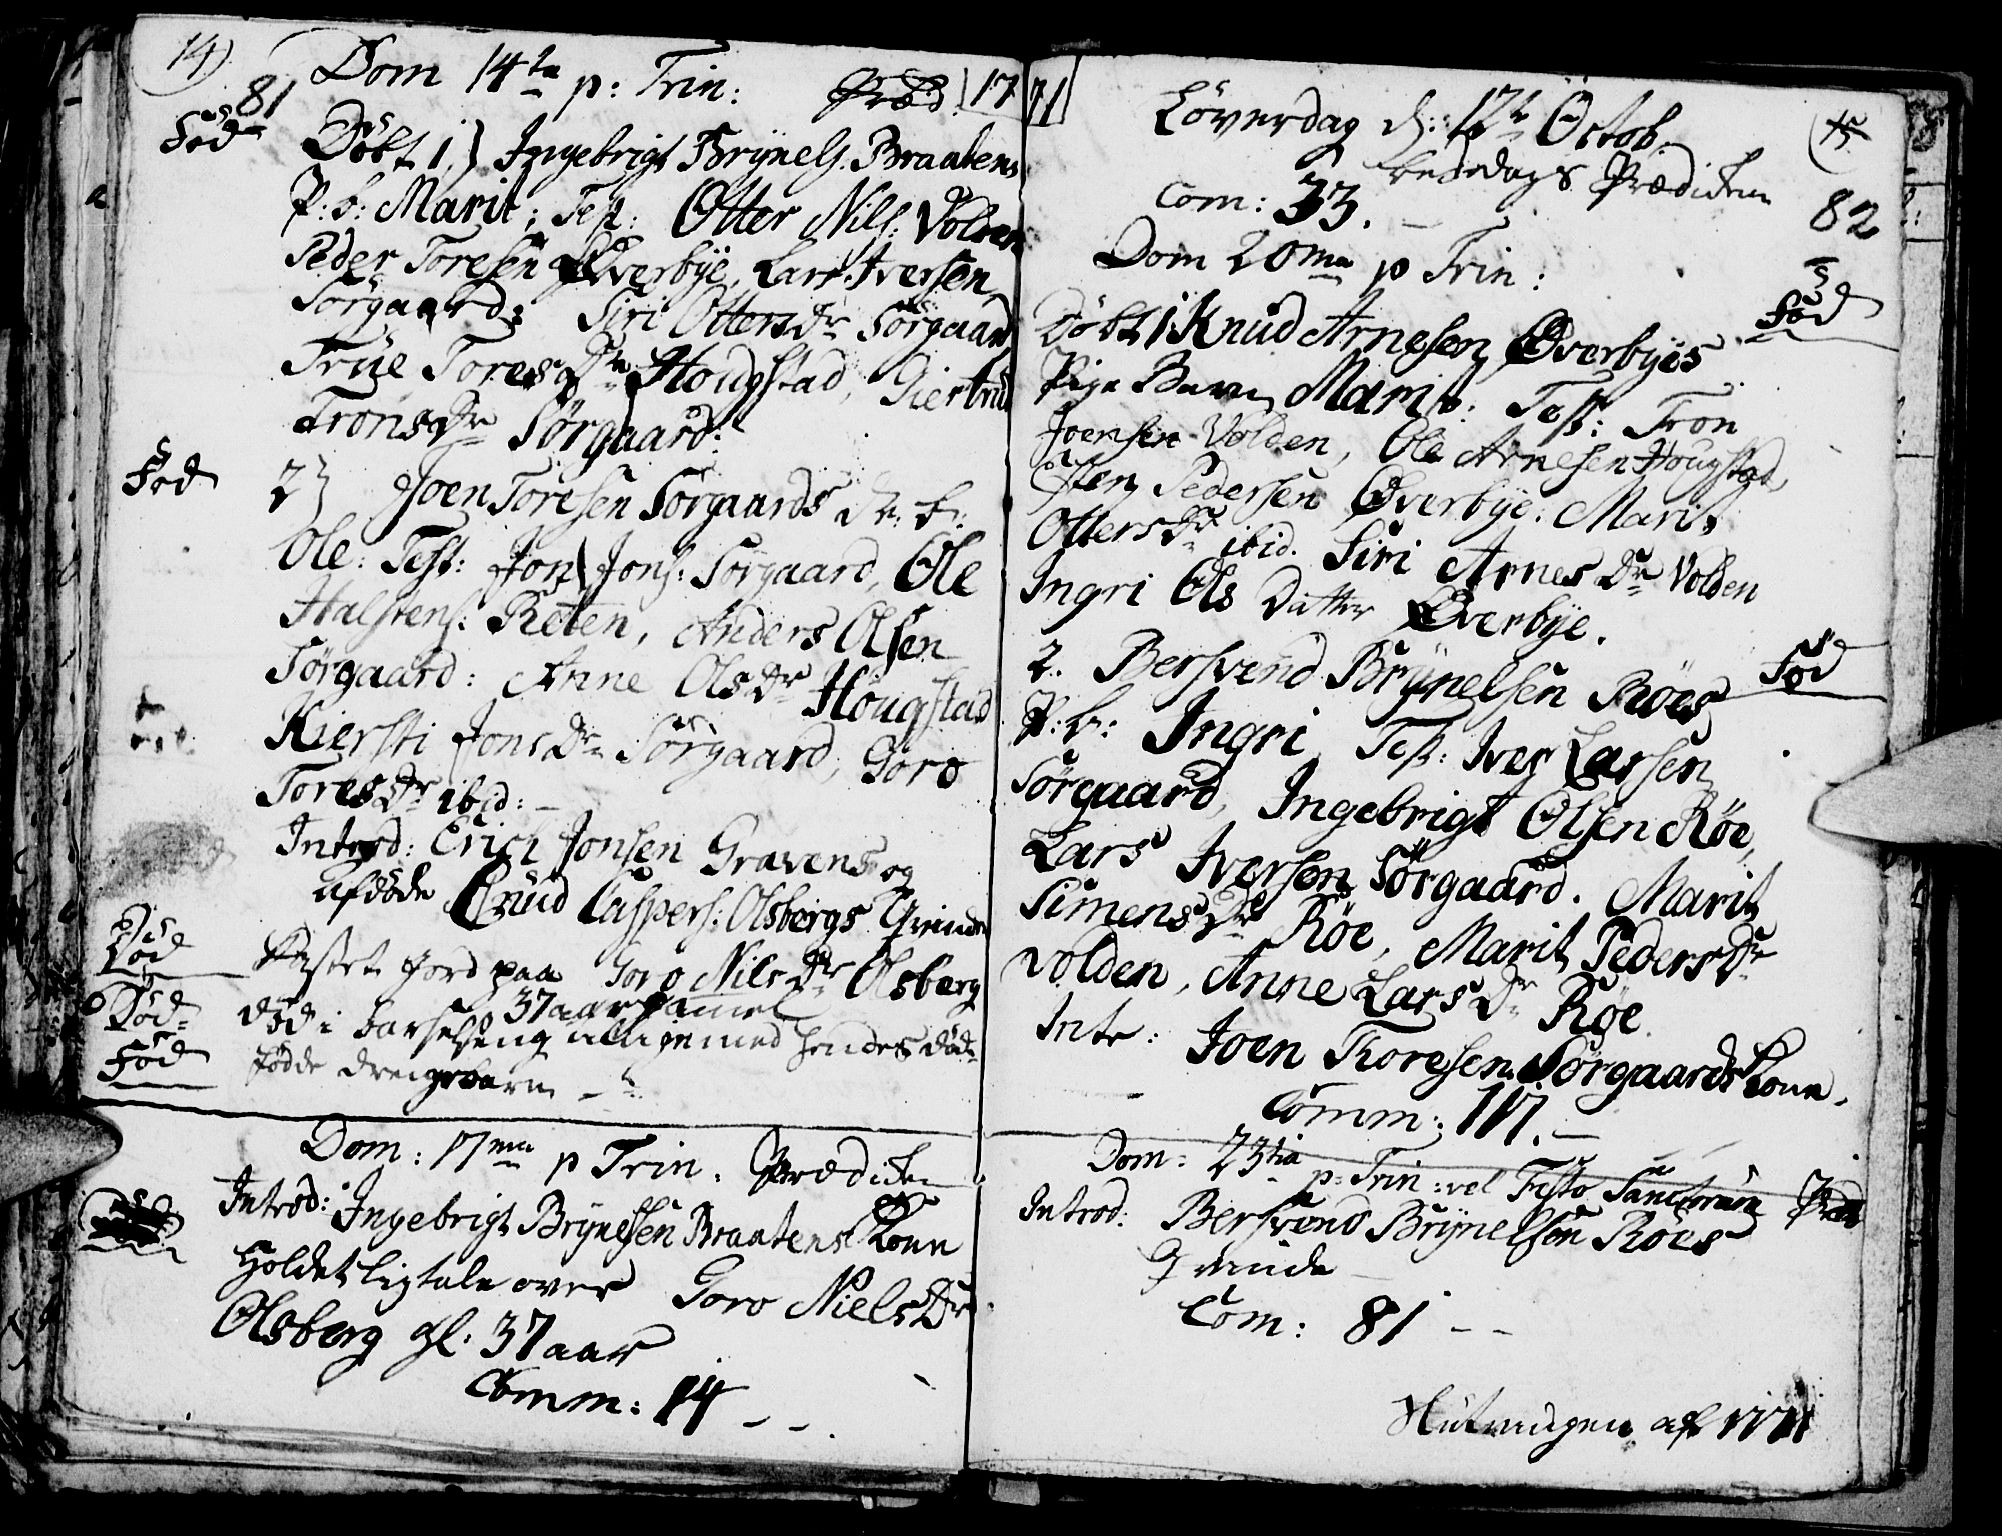 14)
81
Dom 14de p: Trin: Præd 17
Fød
Döbt 1.) Ingebrigt Brÿnels. Braatens
P: b: Marit; Test: Otter Nils: Volden
Peder Toresen Øverbÿe, Lars Iversen
Sørgaard; Siri Ottersdr Sørgaard
Trüe Toresdr Hougstad, Giertrud
Tronsdr Sørgaard:
Fød
2) Joen Toresen Sørgaards Dr: b:
Ole: Test: Jon Jons: Sørgaard, Ole
Halstens: Reten, Anders Olsen
Sørgaard: Anne Olsdr Hougstad
Kiersti Jonsdr Sørgaard, Goro
Toresdr ibid:
Introd: Erich Jonsen Gravens og
afdøde Cnüd Caspers: Olsbergs Qvinde
Død
Kastet Jord paa Goro Nilsdr Olsberg
37 aar gamel
Død
død i barselseng tilligemed hendes død-
Fød
fødde drengebarn
Dom: 17ma p Trin. Prædiken
Introd: Ingebrigt Brÿnelsen Braatens Kone
Holdet Ligtale over Goro Nielsdr
Olsberg gl. 37 aar
Comm: 14
71
15
82
Löverdag d: 12te Octob.
bededags Prædiken
Com: 33.
Dom 20ma p Trin:
Fød
Döbt 1 Knud Arnesen Øverbÿes
Pige Barn Marit. Test: Tron
Joensen Volden, Ole Arnesen Hougstad,
Østen Pedersen Øverbÿe. Marit
Ottersdr ibid. Siri Arnesdr Volden
Ingri Ols Datter Øverbÿe.
Fød
2. Bersvend Brÿnelsen Röes
P: b: Ingri Test: Iver Larsen
Sørgaard, Ingebrigt Olsen Röe,
Lars Iversen Sørgaard. Marit
Simensdr Röe, Marit Pedersdr
Volden, Anne Larsdr Röe.
Intr: Joen Thoresen Sørgaards Kone.
Comm: 117.
Dom: 23tia p: Trin: vel Festo Sanctorum Præd
Introd: Bersvend Brÿnelsen Röes
Qvinde
Com: 81
Slutningen af 1771